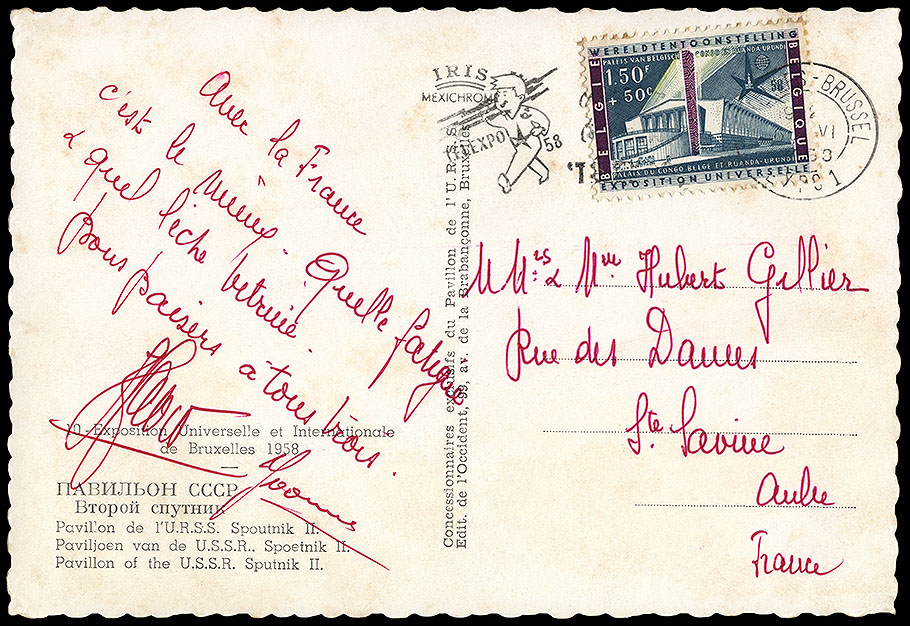 Avec la France
c'est le mieux. Quelle fatigue
& quel lèche vitrine.
Bons baisers à tous trois.
Yvonne
10 - Exposition Universelle et Internationale
de Bruxelles 1958
ПАВИЛЬОН СССР
Второй спутник
Pavil'on de l'U.R.S.S. Spoutnik II.
Paviljoen van de U.S.S.R., Spoetnik II.
Pavillon of the U.S.S.R. Sputnik II.
Concessionnaires exclusifs du Pavillon de l'U.R.S.S.
Edit. de l'Occident, 99, av. de la Brabançonne, Bruxelles
IRIS
MEXICHROME
EXPO 58
WERELDTENTOONSTELLING
PALEIS VAN BELGISCH CONGO EN RUANDA-URUNDI
1,50F
+ 50c
58
BELGIE
BELGIQUE
PALAIS DU CONGO BELGE ET RUANDA-URUNDI
EXPOSITION UNIVERSELLE
BRUSSEL
VI
1
Mrs & Mme Hubert Gillier
Rue des Dames
Ste Savine
Aube
France